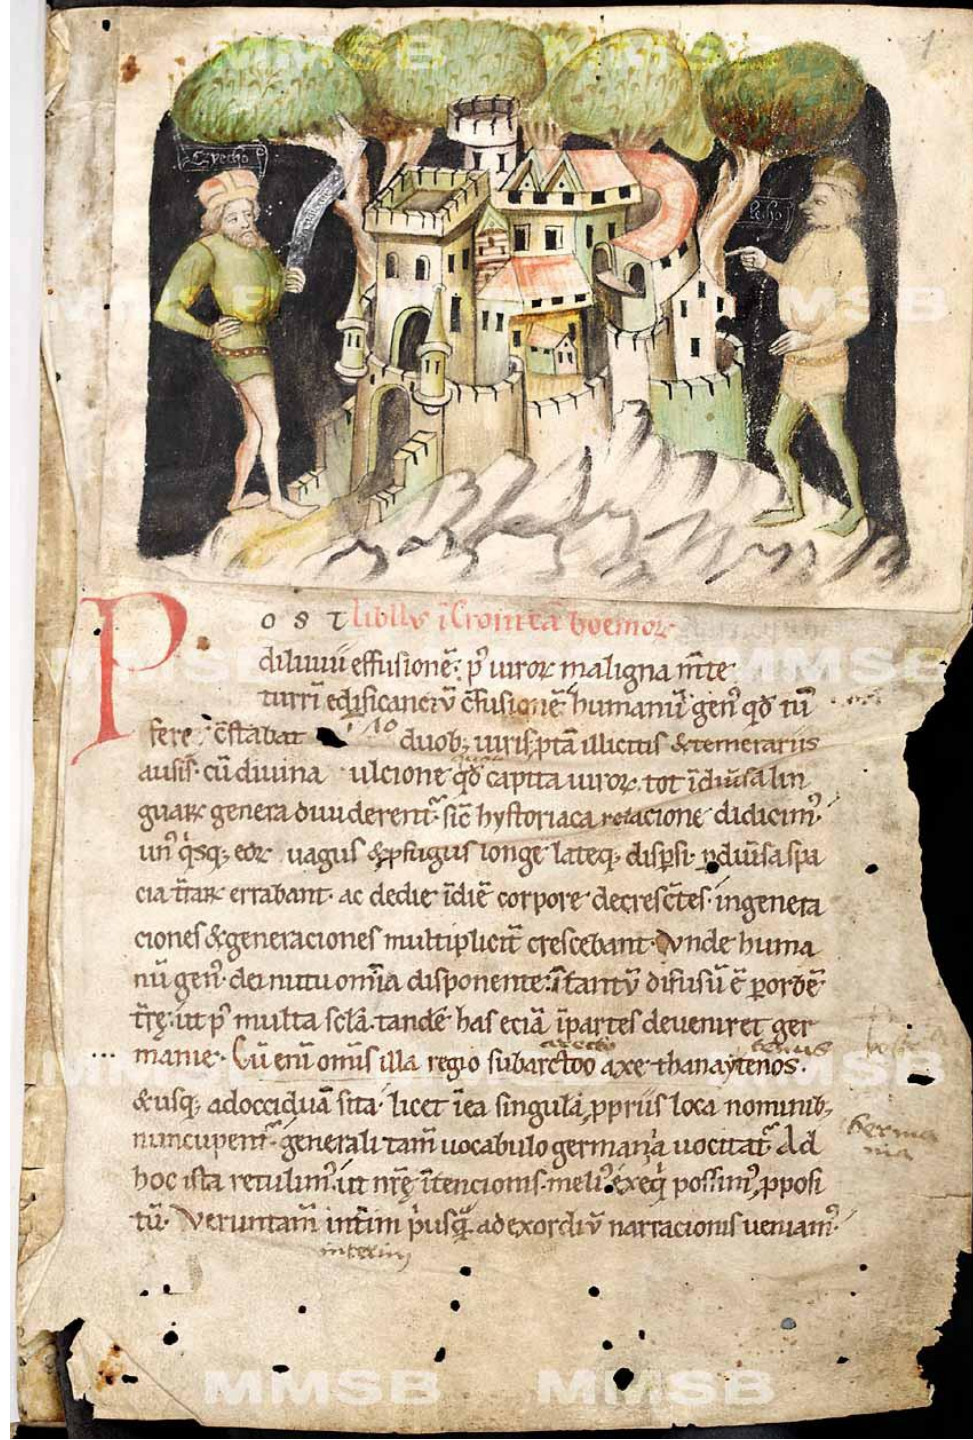 1
Czecho
Lecho
Post libellus in Cronicam boemorum
diluuii effusionē· p' uiror maligna m̄te
turrī edificanciū c̄fusionē· humanū gen' qd̄ tū
fere c̄stabat duob; uiris, p tā illicitis & temerariis
ausis· cū diuina ulcione qd̄ capita uiror· tot ī diūsa lin
guar genera diuiderent̄· sic̄ hystoriaca relacione didicim'·
un' q'sq; eor uagus & p̱fugus longe lateq; disp̱si· p̱ diūsa spa
cia t̄rar errabant· ac de die ī diē corpore decresc̄tes· in genera
ciones & generaciones multiplicit̄ crescebant· Vnde huma
nū gen'· dei nutu om̄ia disponente· ī tantū difusū ē p̱ orbē
t̄rę· ut p' multa sc̄la· tandē has eciā ī partes deueniret ger
manie· Cū eni om̄is illa regio sub arctoo axe· thanaytenos·
arecto
tenus
& usq; ad occiduā sita· licet ī ea singula, p̱priis loca nominib;
nuncupent̄· generali tam̄ uocabulo germania uocitat̄· Ad
germa
nia
hoc ista retulim'· ut nr̄ę ītencionis· meli' exeq' possim', p̱posi
tū· Veruntam̄ int̄im p'usq̄· ad exordiū narracionis ueniam'·
interim
MMSB